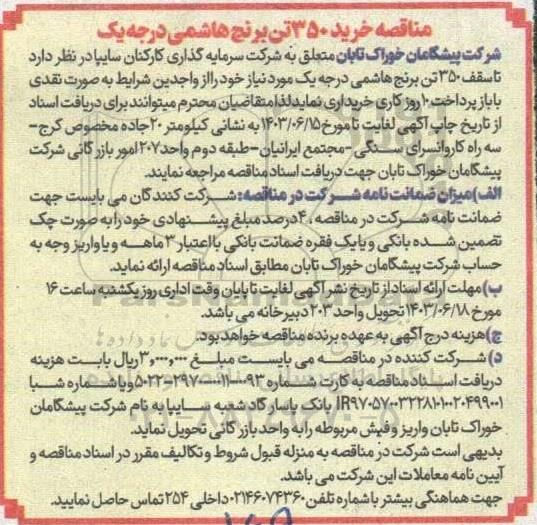 مناقصه خرید ۳۵۰ تن برنج هاشمی درجه یک
شرکت پیشگامان خوراک تابان متعلق به شرکت سرمایه گذاری کارکنان سایپا در نظر دارد
تا سقف ۳۵۰ تن برنج هاشمی درجه یک مورد نیاز خود را از واجدین شرایط به صورت نقدی
با باز پرداخت ۱۰ روز کاری خریداری نماید لذا متقاضیان محترم میتوانند برای دریافت اسناد
از تاریخ چاپ آگهی لغایت تا مورخ ۱۴۰۳/۰۶/۱۵ به نشانی کیلومتر ۲۰ جاده مخصوص کرج-
سه راه کاروانسرای سنگی-مجتمع ایرانیان-طبقه دوم واحد ۲۰۷ امور بازرگانی شرکت
پیشگامان خوراک تابان جهت دریافت اسناد مناقصه مراجعه نمایند.
الف) میزان ضمانت نامه شرکت در مناقصه: شرکت کنندگان می بایست جهت
ضمانت نامه شرکت در مناقصه، ۴ درصد مبلغ پیشنهادی خود را به صورت چک
تضمین شده بانکی و یا یک فقره ضمانت بانکی با اعتبار ۳ ماهه و یا واریز وجه به
حساب شرکت پیشگامان خوراک تابان مطابق اسناد مناقصه ارائه نماید.
ب) مهلت ارائه اسناد از تاریخ نشر آگهی لغایت تا پایان وقت اداری روز یکشنبه ساعت ۱۶
مورخ ۱۴۰۳/۰۶/۱۸ تحویل واحد ۲۰۳ دبیرخانه می باشد.
ج) هزینه درج آگهی به عهده برنده مناقصه خواهد بود.
د) شرکت کننده در مناقصه می بایست مبلغ ۳,۰۰۰,۰۰۰ ریال بابت هزینه
دریافت اسناد مناقصه به کارت شماره و یا شماره شبا
بانک پاسارگاد شعبه سایپا به نام شرکت پیشگامان
خوراک تابان واریز و فیش مربوطه را به واحد بازرگانی تحویل نماید.
بدیهی است شرکت در مناقصه به منزله قبول شروط و تکالیف مقرر در اسناد مناقصه و
آیین نامه معاملات این شرکت می باشد.
جهت هماهنگی بیشتر با شماره تلفن ۰۲۱۴۶۰۷۴۳۶۰ داخلی ۲۵۴ تماس حاصل نمایید.